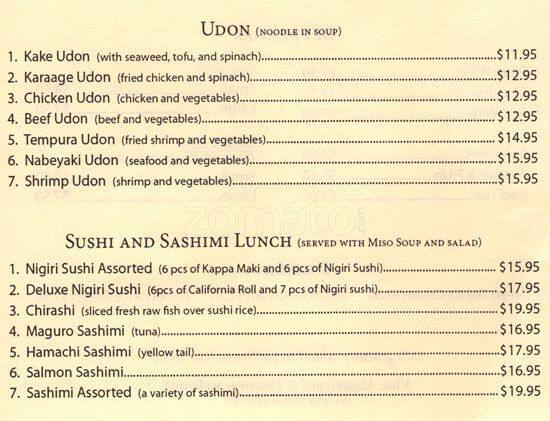 UDON (NOODLE IN SOUP)
1. Kake Udon (with seaweed, tofu, and spinach)......$11.95
2. Karaage Udon (fried chicken and spinach)......$12.95
3. Chicken Udon (chicken and vegetables)......$12.95
4. Beef Udon (beef and vegetables)......$12.95
5. Tempura Udon (fried shrimp and vegetables)......$14.95
6. Nabeyaki Udon (seafood and vegetables)......$15.95
7. Shrimp Udon (shrimp and vegetables)......$15.95
zomato.com
SUSHI AND SASHIMI LUNCH (SERVED WITH MISO SOUP AND SALAD)
1. Nigiri Sushi Assorted (6 pcs of Kappa Maki and 6 pcs of Nigiri Sushi)......$15.95
2. Deluxe Nigiri Sushi (6pcs of California Roll and 7 pcs of Nigiri sushi)......$17.95
3. Chirashi (sliced fresh raw fish over sushi rice)......$19.95
4. Maguro Sashimi (tuna)......$16.95
5. Hamachi Sashimi (yellow tail)......$17.95
6. Salmon Sashimi......$16.95
7. Sashimi Assorted (a variety of sashimi)......$19.95